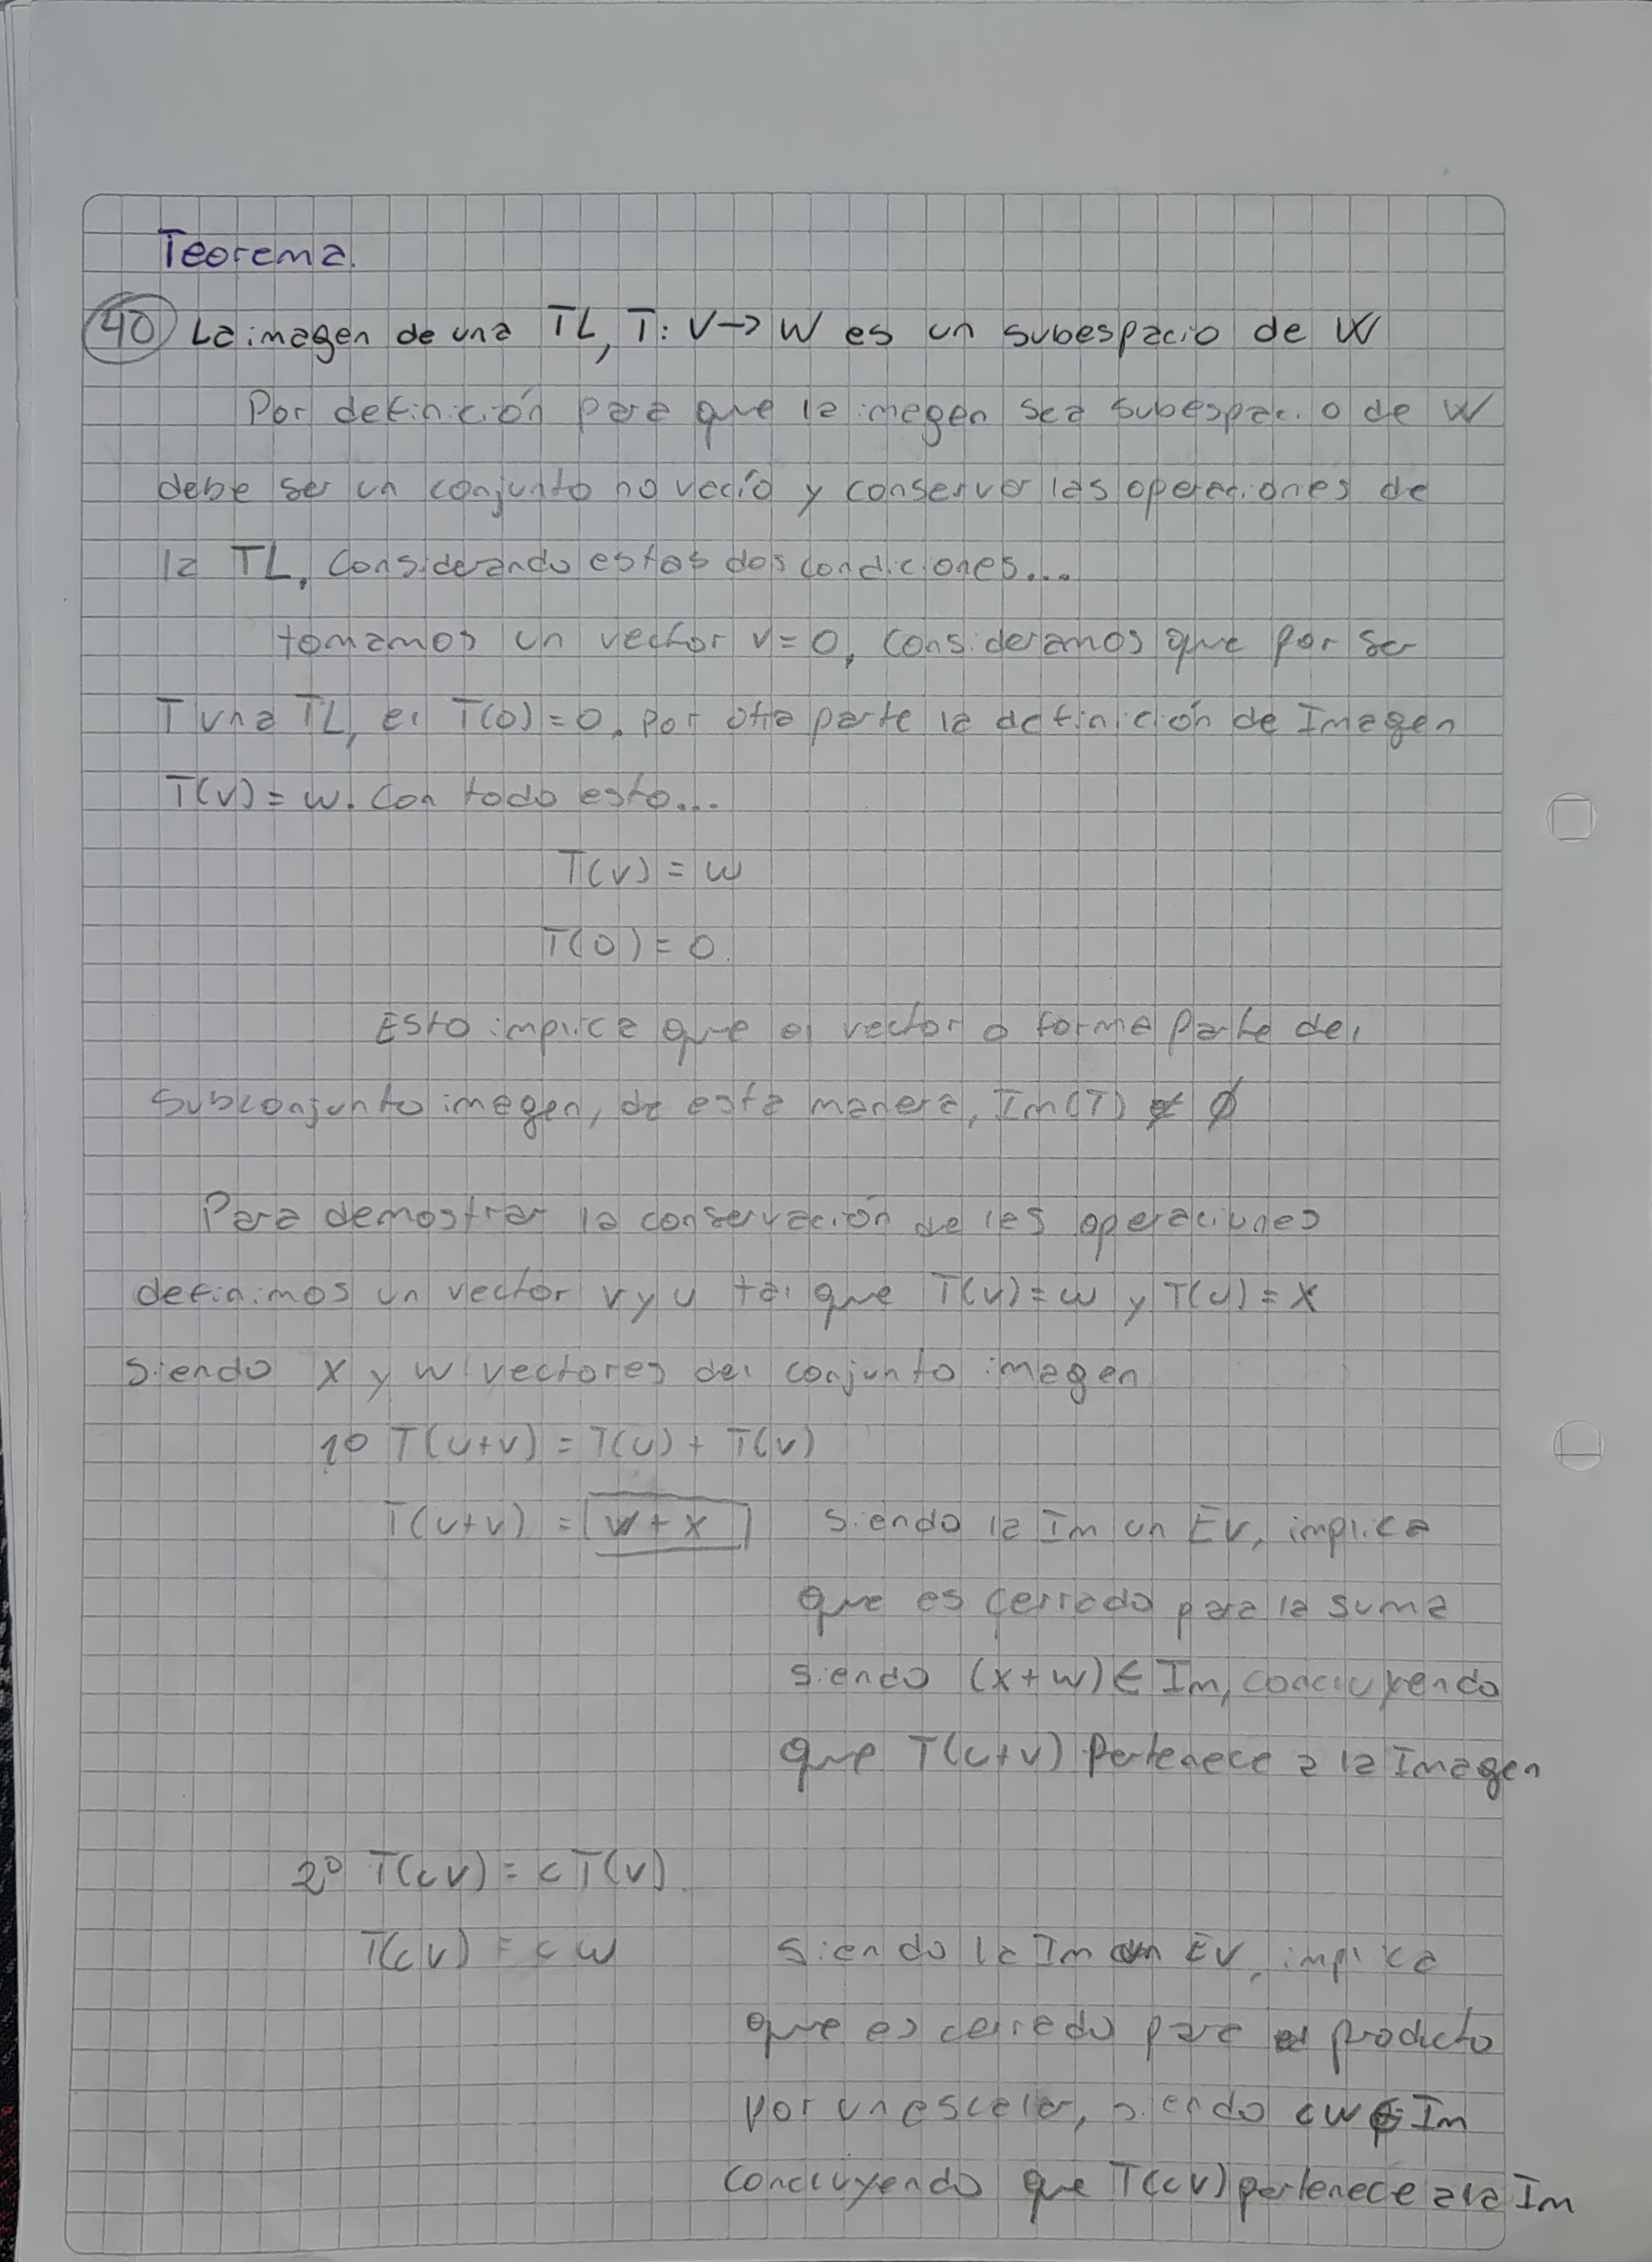 Teorema.
40 La imagen de una TL, T: V→ W es un subespacio de W
Por definición para que la imagen sea subespacio de W
debe ser un conjunto no vacío y conservar las operaciones de
la TL, Considerando estas dos condiciones...
tomamos un vector v=0, consideramos que por ser
T una TL, el T(0)=0. por otra parte la definición de Imagen
T(v)=w. Con todo esto...
T(v) = w
T(0) = 0.
Esto implica que el vector 0 forma parte del
subconjunto imagen, de esta manera, Im(T) ≠ ∅
Para demostrar la conservación de las operaciones
definimos un vector v y u tal que T(v)=w y T(u)=x
siendo x y w vectores del conjunto imagen
1º T(u+v) = T(u) + T(v)
T(u+v) = w + x siendo la Im un EV, implica
que es cerrado para la suma
siendo (x+w) ∈ Im, concluyendo
que T(u+v) pertenece a la Imagen
2º T(cv) = cT(v).
T(cv) = cw siendo la Im un EV, implica
que es cerrado para el producto
por un escalar, siendo cw ∈ Im
concluyendo que T(cv) pertenece a la Im